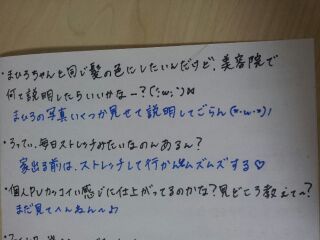 ・まひろちゃんと同じ髪の色にしたいんだけど、美容院で
何て説明したらいいかなー？(´;ω;`)
まひろの写真いくつか見せて説明してごらん(・ω・)ノ
・ろってぃ、毎日ストレッチみたいなのんあるん？
家出る前は、ストレッチして行かんなムズムズする♡
・個人PVカッコイイ感じに仕上がってるのかな？見どころ教えて〜？
まだ見てへんねん〜♪